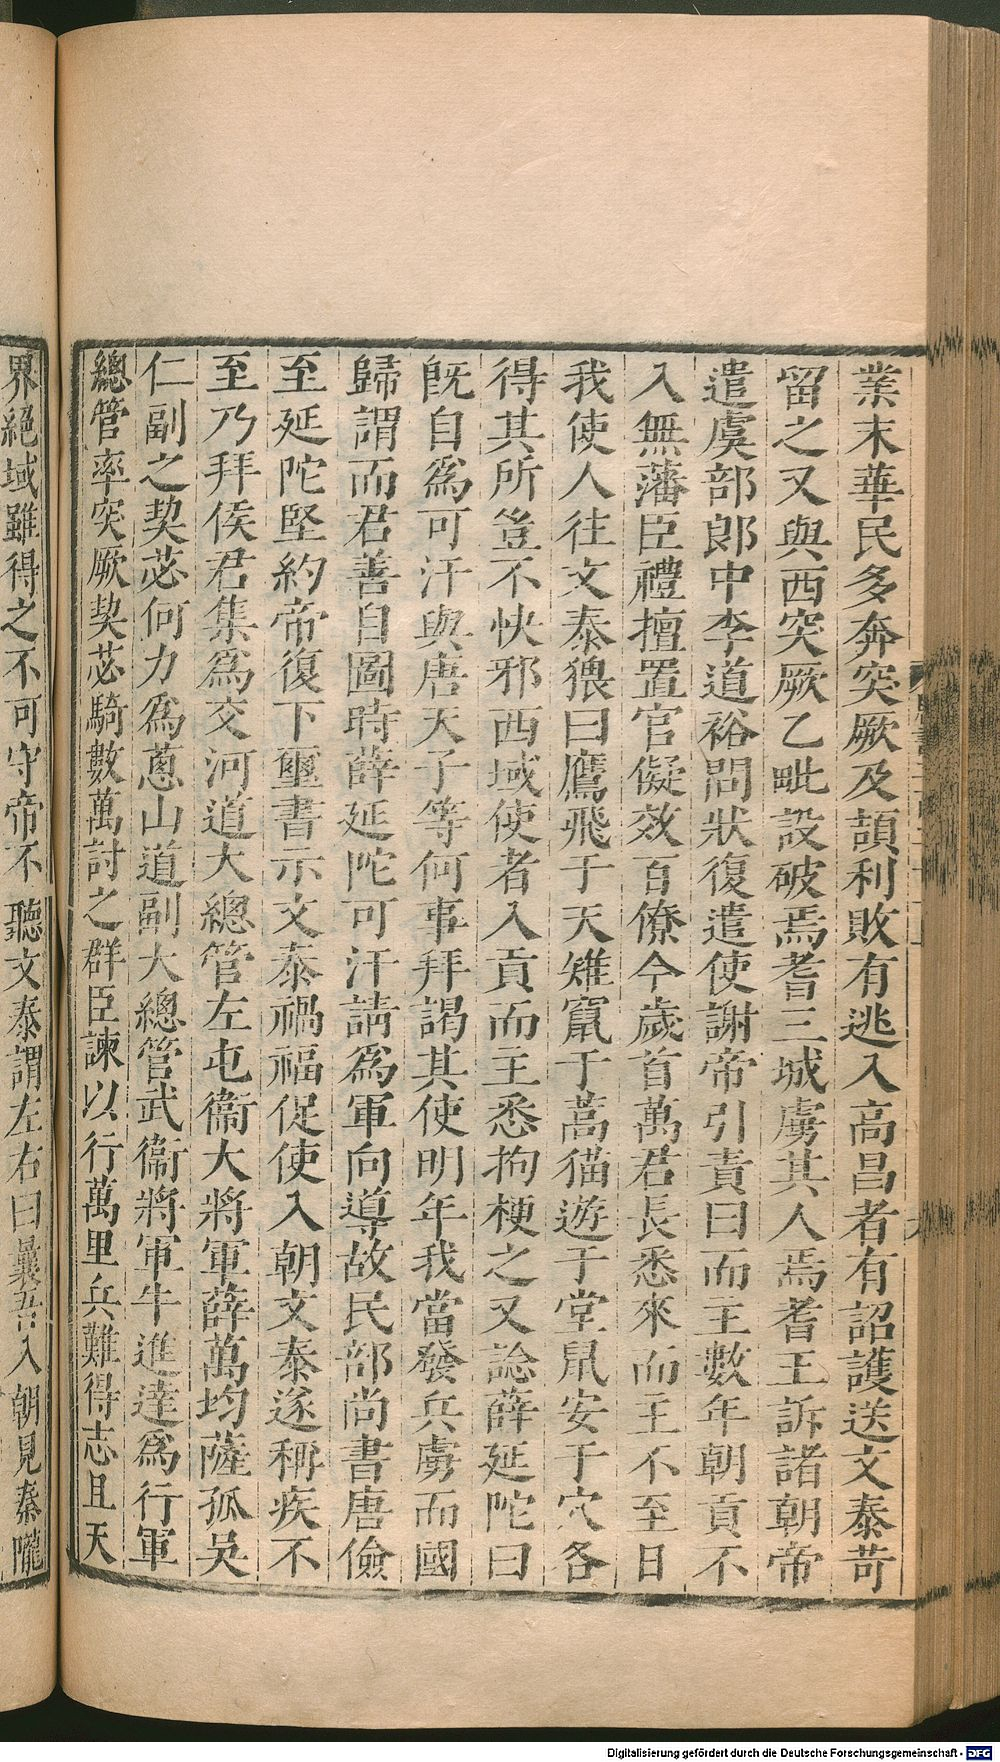 業末華民多奔突厥及頡利敗有逃入高昌者有詔護送文泰苛
留之又與西突厥乙毗設破焉耆三城虜其人焉耆王訴諸朝帝
遣虞部郎中李道裕問狀復遣使謝帝引責曰而主數年朝貢不
入無藩臣禮擅置官儗效百僚今歲首萬君長悉來而主不至日
我使人往文泰猥曰鷹飛于天雉竄于蒿猫遊于堂鼠安于穴各
得其所豈不快邪西域使者入貢而主悉拘梗之又諗薛延陀曰
旣自爲可汗與唐天子等何事拜謁其使明年我當發兵虜而國
歸謂而君善自圖時薛延陀可汗請爲軍向導故民部尚書唐儉
至延陀堅約帝復下璽書示文泰禍福促使入朝文泰遂稱疾不
至乃拜侯君集爲交河道大總管左屯衞大將軍薛萬均薩孤吳
仁副之契苾何力爲蔥山道副大總管武衞將軍牛進達爲行軍
總管率突厥契苾騎數萬討之群臣諫以行萬里兵難得志且天
界絕域雖得之不可守帝不聽文泰謂左右曰曩吾入朝見秦隴
Digitalisierung gefördert durch die Deutsche Forschungsgemeinschaft - DFG